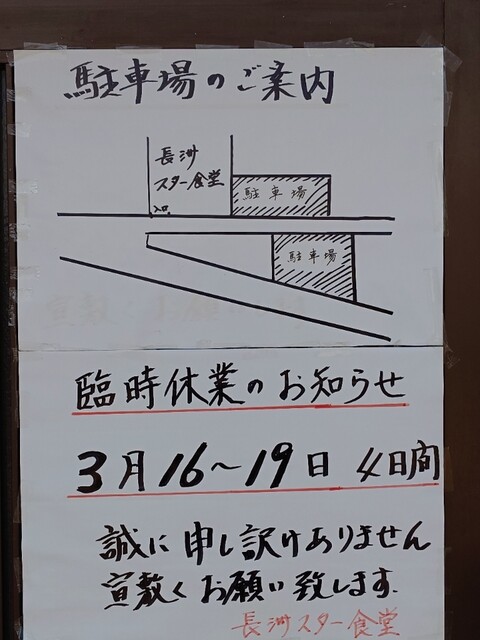 駐車場のご案内
長洲
スター食堂
入口
駐車場
駐車場
臨時休業のお知らせ
3月16～19日 4日間
誠に申し訳けありません
宜敷くお願い致します.
長洲スター食堂